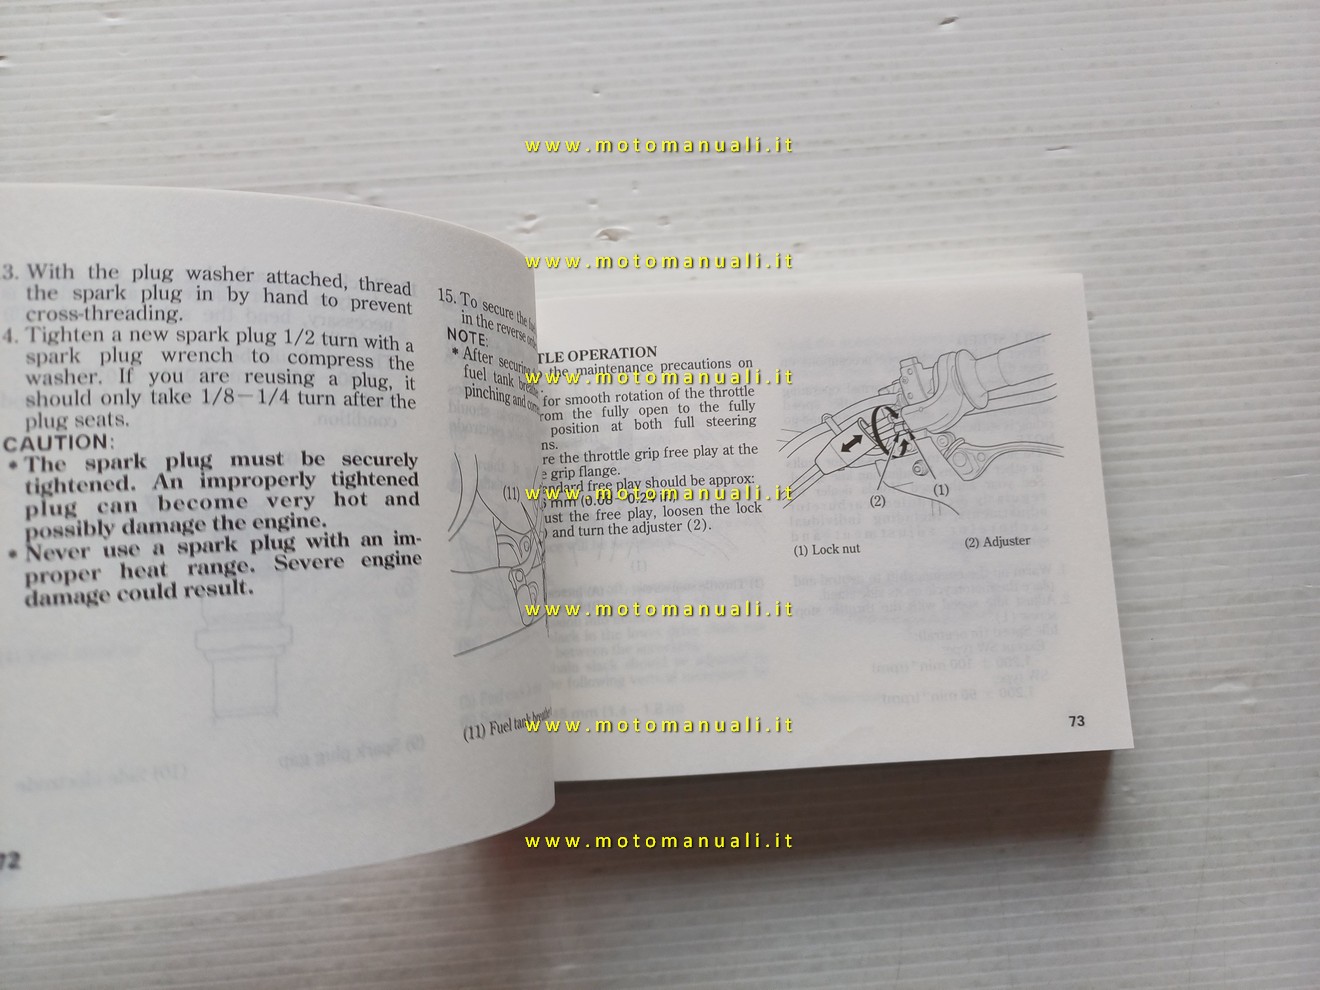 www.motomanuali.it
www.motomanuali.it
www.motomanuali.it
www.motomanuali.it
www.motomanuali.it
www.motomanuali.it
www.motomanuali.it
3. With the plug washer attached, thread
the spark plug in by hand to prevent
cross-threading.
4. Tighten a new spark plug 1/2 turn with a
spark plug wrench to compress the
washer. If you are reusing a plug, it
should only take 1/8—1/4 turn after the
plug seats.
CAUTION:
• The spark plug must be securely
tightened. An improperly tightened
plug can become very hot and
possibly damage the engine.
• Never use a spark plug with an im-
proper heat range. Severe engine
damage could result.
72
15. To secure the
in the reverse
NOTE:
* After securing
fuel tank
pinching and
(11)
(11) Fuel tank
TLE OPERATION
the maintenance precautions on
for smooth rotation of the throttle
rom the fully open to the fully
position at both full steering
ns.
re the throttle grip free play at the
grip flange.
andard free play should be approx:
mm (0.08—0.24 in)
ust the free play, loosen the lock
) and turn the adjuster (2).
(2)
(1)
(1) Lock nut
(2) Adjuster
73